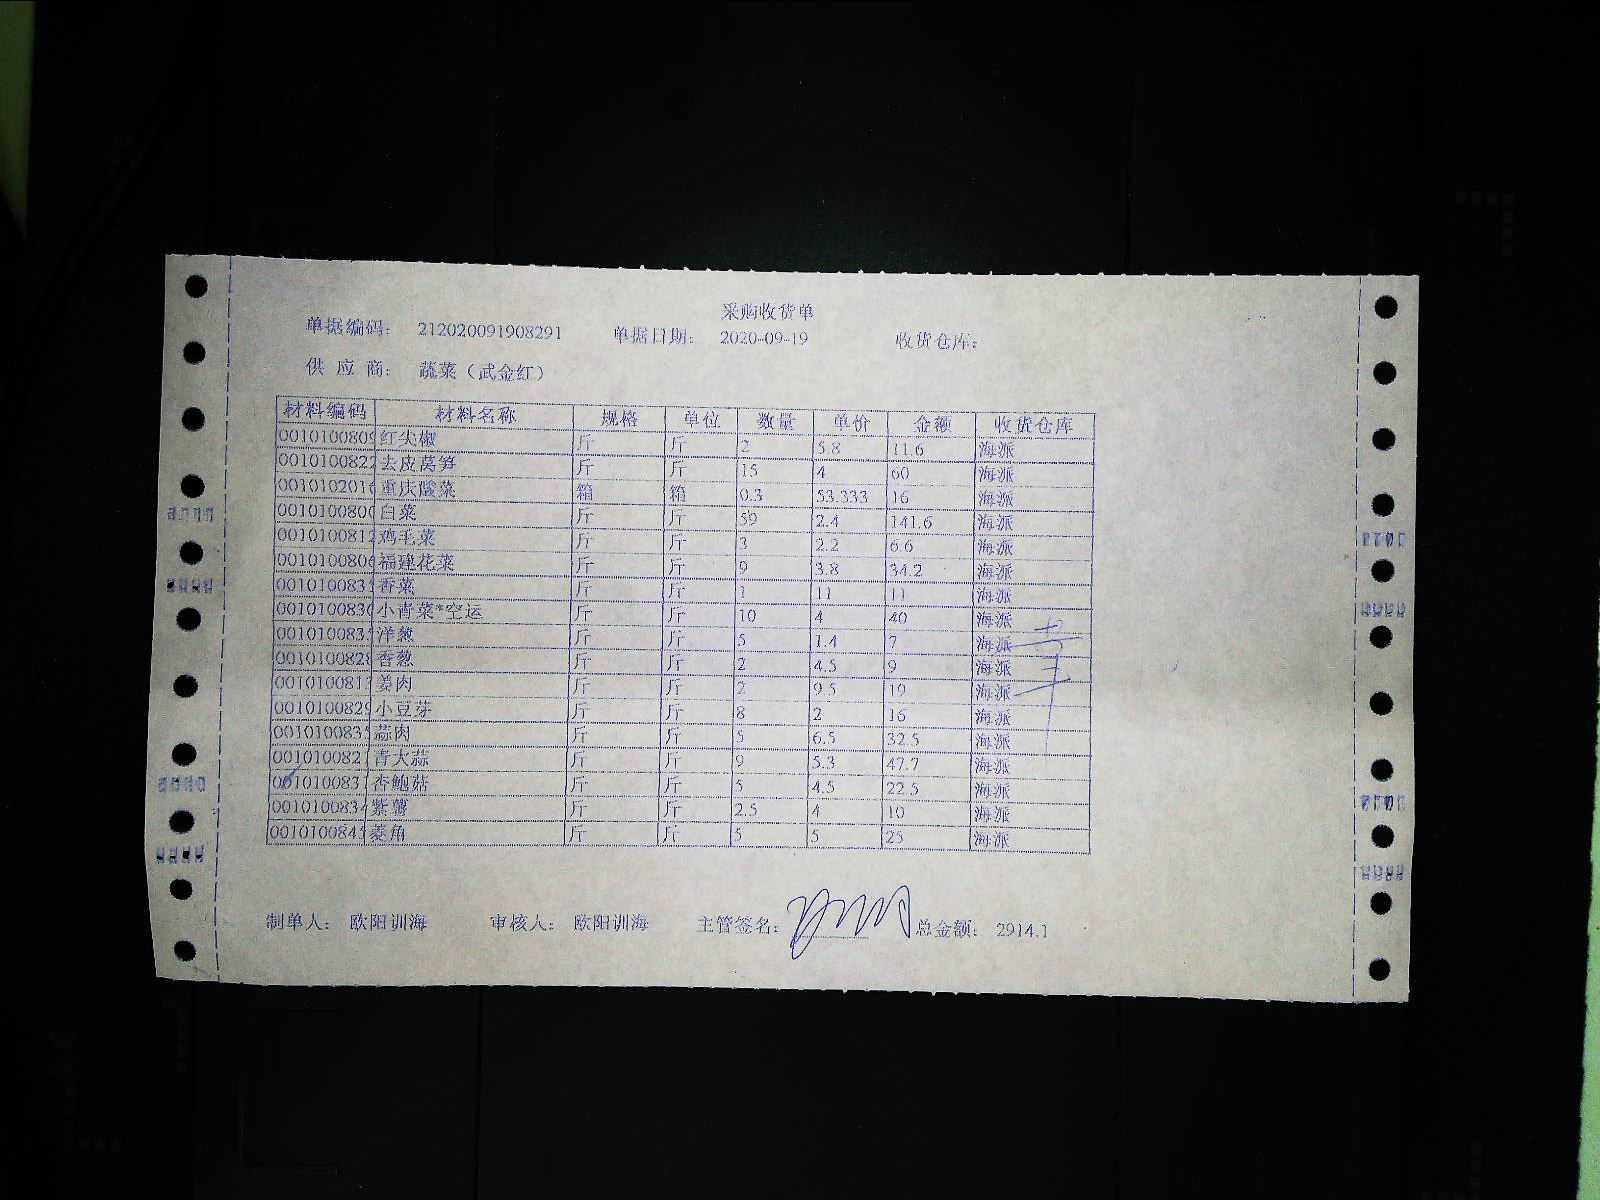 采购收货单
单据编码： 212020091908291 单据日期： 2020-09-19 收货仓库：
供 应 商： 蔬菜（武金红）
材料编码 材料名称 规格 单位 数量 单价 金额 收货仓库
0010100809 红尖椒 斤 斤 2 5.8 11.6 海派
0010100822 去皮莴笋 斤 斤 15 4 60 海派
001010201 重庆酸菜 箱 箱 0.3 53.333 16 海派
001010080 白菜 斤 斤 59 2.4 141.6 海派
0010100812 鸡毛菜 斤 斤 3 2.2 6.6 海派
001010080 福建花菜 斤 斤 9 3.8 34.2 海派
001010083 香菜 斤 斤 1 11 11 海派
001010083 小青菜*空运 斤 斤 10 4 40 海派
001010083 洋葱 斤 斤 5 1.4 7 海派
001010082 香葱 斤 斤 2 4.5 9 海派
001010081 姜肉 斤 斤 2 9.5 19 海派
001010082 小豆芽 斤 斤 8 2 16 海派
001010083 蒜肉 斤 斤 5 6.5 32.5 海派
001010082 青大蒜 斤 斤 9 5.3 47.7 海派
001010083 杏鲍菇 斤 斤 5 4.5 22.5 海派
001010083 紫薯 斤 斤 2.5 4 10 海派
001010084 菱角 斤 斤 5 5 25 海派
制单人： 欧阳训海 审核人： 欧阳训海 主管签名： 总金额： 2914.1